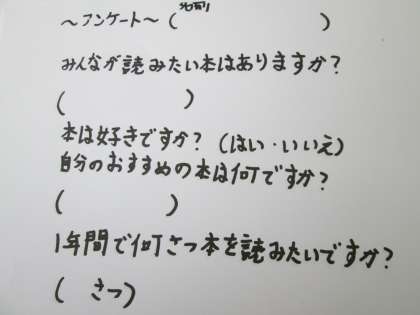 名前
～アンケート～（　　　　　）
みんなが読みたい本はありますか？
（　　　　　）
本は好きですか？（はい・いいえ）
自分のおすすめの本は何ですか？
（　　　　　）
1年間で何さつ本を読みたいですか？
（　さつ）